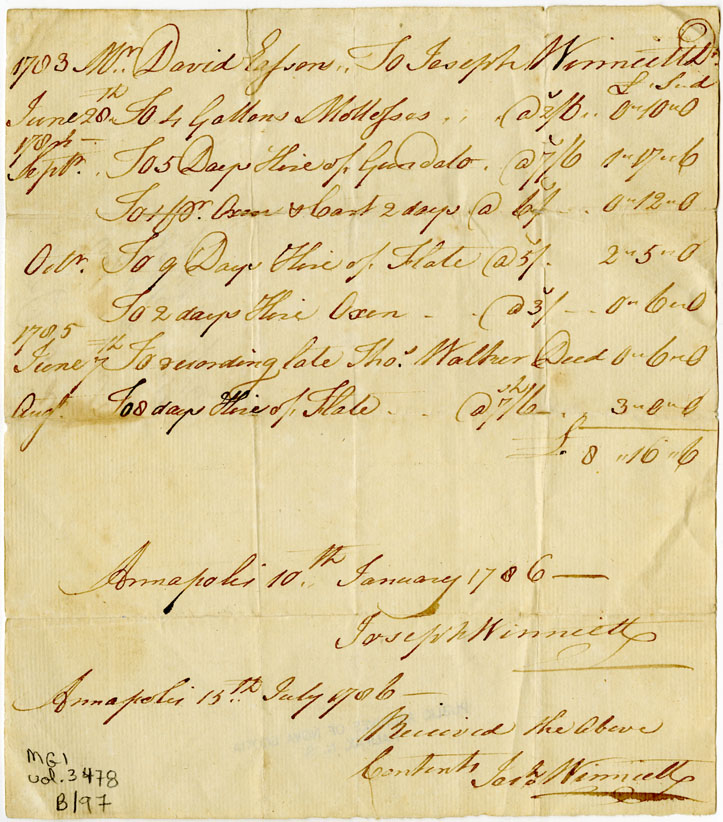 1783 Mr. David Easson .. To Joseph Winniett Dr.
£ .. S .. d
June 28th To 4 Gallons Mollesses .. @ 2/6 .. 0 " 10 " 0
1784
Septr. .. To 5 Days Hire of Gundalo . @ 7/6 1 " 17 " 6
To 1 pr. Oxen & Cart 2 days @ 6/ 0 " 12 " 0
Octr. To 9 Days Hire of Flate @ 5/. 2 " 5 " 0
To 2 days Hire Oxen .. @ 3/ 0 " 6 " 0
1785
June 7th To recording late Thos. Walker Deed 0 " 6 " 0
Augt. To 8 days Hire of Flate .. @ 7/6 3 " 0 " 0
£ 8 " 16 " 6
Annapolis 10th January 1786
Joseph Winniett
Annapolis 15th July 1786
Received the above
Contents Josh. Winniett
MG1
vol. 3478
B/97